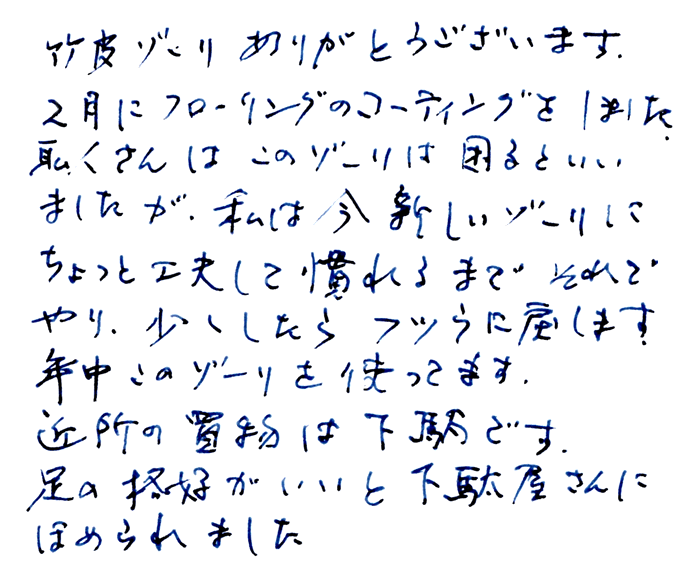 竹皮ゾーリ ありがとうございます.
2月にフローリングのコーティングをしました.
恥くさんは このゾーリは 困るといい
ましたが. 私は今 新しいゾーリに
ちょっと工夫して慣れるまで それで
やり. 少ししたら フツウに戻します.
年中このゾーリを使ってます.
近所の 買物は 下駄です.
足の 格好がいいと 下駄屋さんに
ほめられました